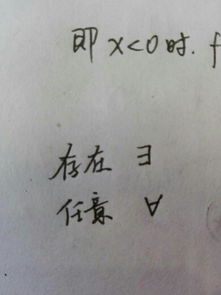 即 x<0 时. f
存在 ∃
任意 ∀